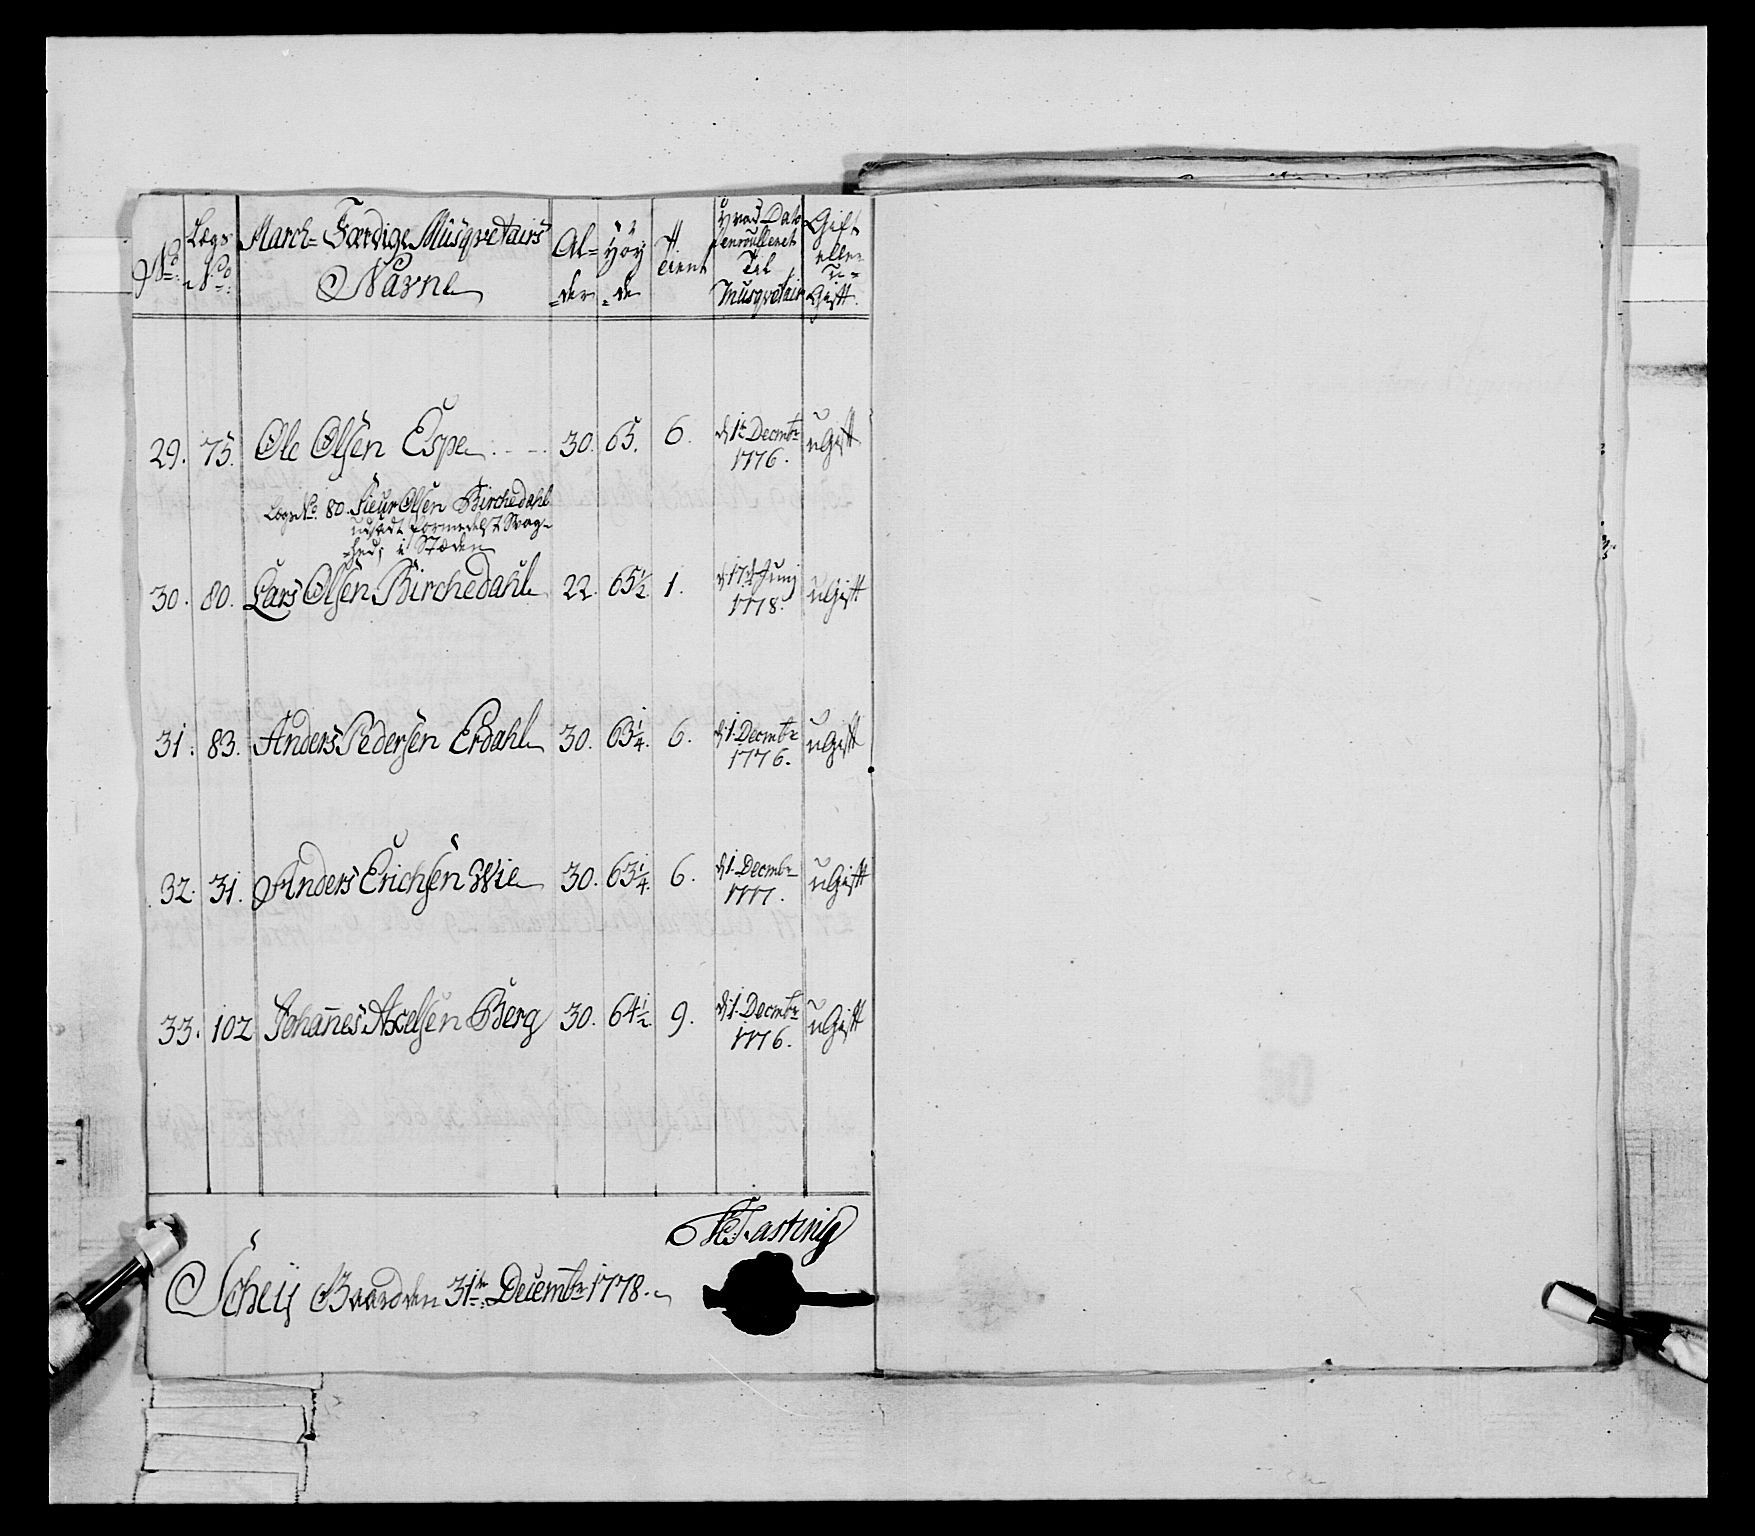 No. Lægs No. March-Færdige Musqvetairs Nafne Al-der Höy-de Tient Hvad Dato enroulleret Til Musqvetair Gift eller u-Gift.
29. 75. Ole Olsen Espe 30. 65. 6. d 1t Decmbr 1776. uGift
Lægs No. 80. Sieur Olsen Birchedahl
udsadt formedelst Svag-
-hed, i Stæden
30. 80. Lars Olsen Birchedahl 22. 65½ 1. d 17t Junj 1778. uGift
31. 83. Anders Pedersen Erdahl 30. 63¼. 6. d 1. Decmbr 1776. uGift
32. 31. Anders Erichsen Wie 30. 63¼. 6. d 1. Decmbr 1777. uGift
33. 102 Johannes Axelsen Berg 30. 64½ 9. d 1. Decmbr 1776. uGift
Fasting
Scheij Gaard den 31te Decembr 1778.